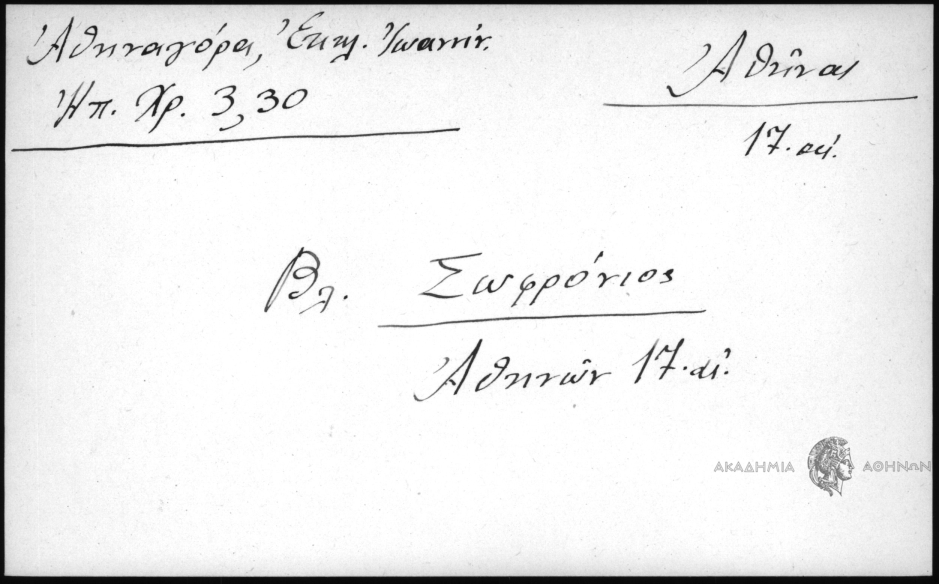 Ἀθηναγόρα, Ἐκκλ. Ἰωαννίν.
Ἠπ. Χρ. 3,30
Ἀθῆναι
17. αἰ.
Βλ. Σωφρόνιος
Ἀθηνῶν 17. αἰ.
ΑΚΑΔΗΜΙΑ ΑΘΗΝΩΝ